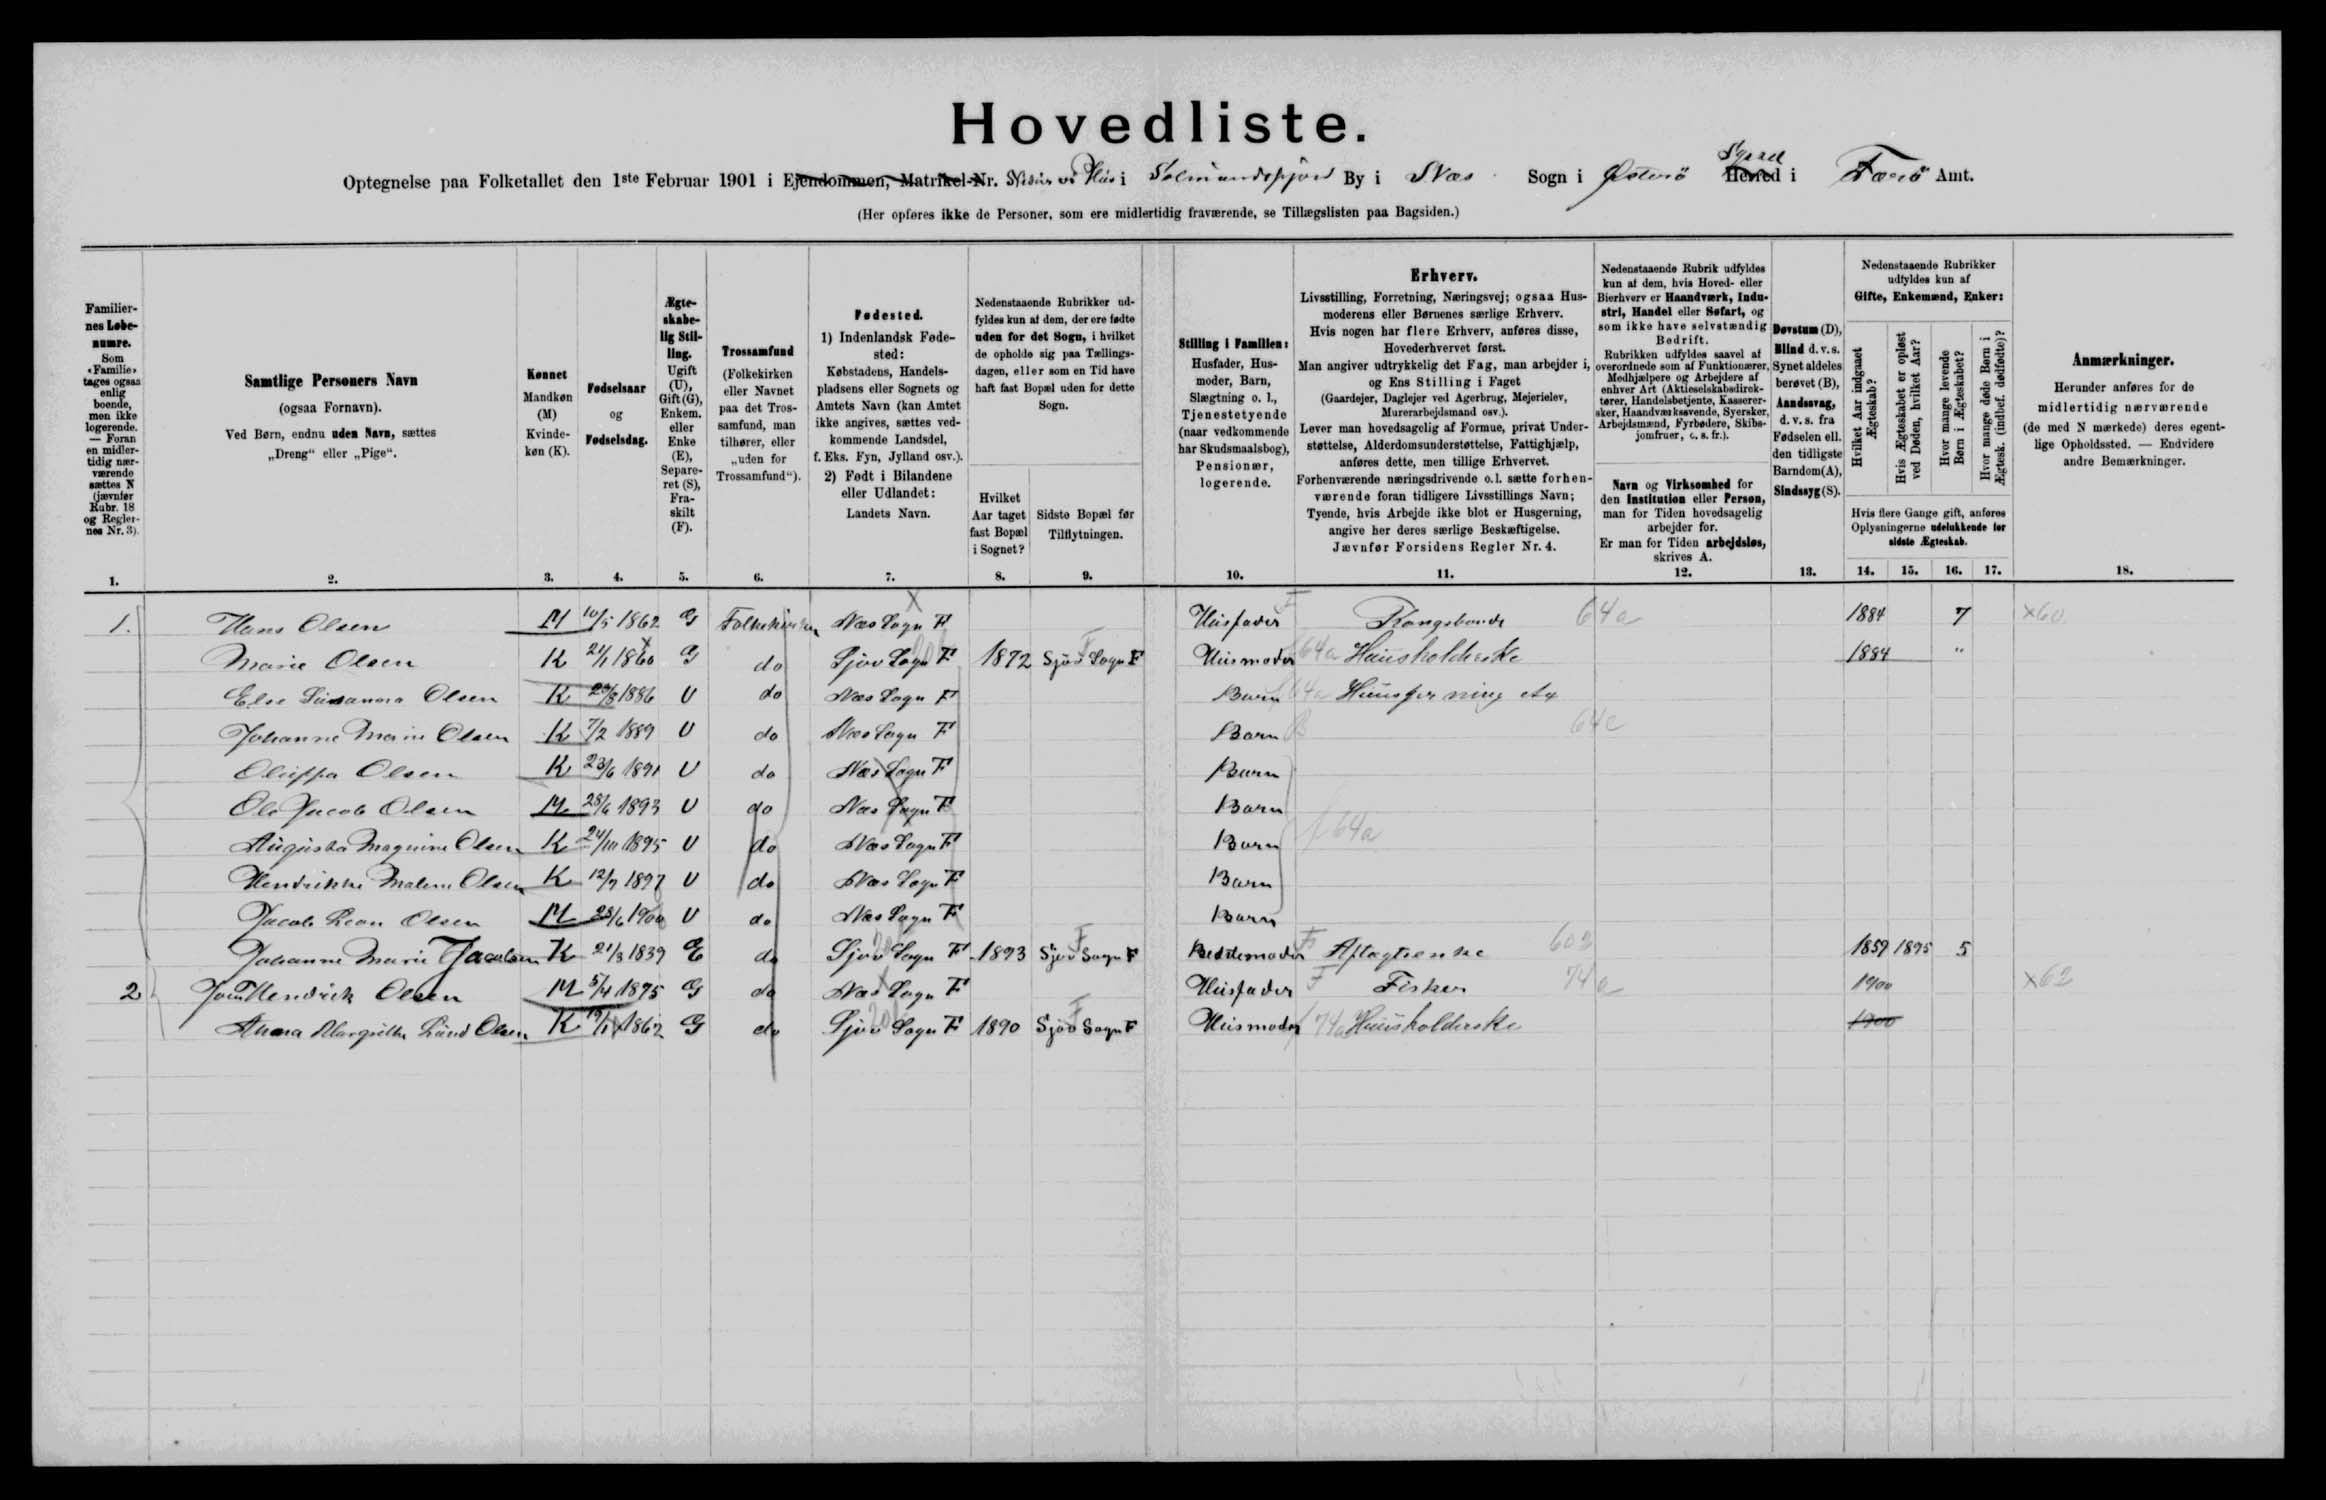 Hovedliste.
Optegnelse paa Folketallet den 1ste Februar 1901 i Ejendommen, Matrikel-Nr. Hús i Solmundefjord By i Næs Sogn i Østerø Syssel Herred i Færø Amt.
(Her opføres ikke de Personer, som ere midlertidig fraværende, se Tillægslisten paa Bagsiden.)
Familiernes Løbenumre. Som «Familie» tages ogsaa enlig boende, men ikke logerende. — Foran en midlertidig nærværende sættes N (jævnfør Rubr. 18 og Reglernes Nr. 3).
Samtlige Personers Navn
(ogsaa Fornavn).
Ved Børn, endnu uden Navn, sættes
„Dreng“ eller „Pige“.
Kønnet
Mandkøn (M)
Kvindekøn (K).
Fødselsaar
og
Fødselsdag.
Ægteskabelig Stilling.
Ugift (U), Gift (G), Enkem. eller Enke (E), Separeret (S), Fraskilt (F).
Trossamfund
(Folkekirken eller Navnet paa det Trossamfund, man tilhører, eller „uden for Trossamfund“).
Fødested.
1) Indenlandsk Fødested:
Købstadens, Handelspladsens eller Sognets og Amtets Navn (kan Amtet ikke angives, sættes vedkommende Landsdel, f. Eks. Fyn, Jylland osv.).
2) Født i Bilandene eller Udlandet:
Landets Navn.
Nedenstaaende Rubrikker udfyldes kun af dem, der ere fødte uden for det Sogn, i hvilket de opholde sig paa Tællingsdagen, eller som en Tid have haft fast Bopæl uden for dette Sogn.
Hvilket Aar taget fast Bopæl i Sognet?
Sidste Bopæl før Tilflytningen.
Stilling i Familien:
Husfader, Husmoder, Barn, Slægtning o. l., Tjenestetyende (naar vedkommende har Skudsmaalsbog), Pensionær, logerende.
Erhverv.
Livsstilling, Forretning, Næringsvej; ogsaa Husmoderens eller Børnenes særlige Erhverv.
Hvis nogen har flere Erhverv, anføres disse, Hovederhvervet først.
Man angiver udtrykkelig det Fag, man arbejder i, og Ens Stilling i Faget
(Gaardejer, Daglejer ved Agerbrug, Mejerielev, Murerarbejdsmand osv.).
Lever man hovedsagelig af Formue, privat Understøttelse, Alderdomsunderstøttelse, Fattighjælp, anføres dette, men tillige Erhvervet.
Forhenværende næringsdrivende o.l. sætte forhenværende foran tidligere Livsstillings Navn;
Tyende, hvis Arbejde ikke blot er Husgerning, angive her deres særlige Beskæftigelse.
Jævnfør Forsidens Regler Nr. 4.
Nedenstaaende Rubrik udfyldes kun af dem, hvis Hoved- eller Bierhverv er Haandværk, Industri, Handel eller Søfart, og som ikke have selvstændig Bedrift.
Rubrikken udfyldes saavel af overordnede som af Funktionærer, Medhjælpere og Arbejdere af enhver Art (Aktieselskabsdirektører, Handelsbetjente, Kasserersker, Haandværkssvende, Syersker, Arbejdsmænd, Fyrbødere, Skibsjomfruer, o. s. fr.).
Navn og Virksomhed for den Institution eller Person, man for Tiden hovedsagelig arbejder for.
Er man for Tiden arbejdsløs, skrives A.
Døvstum (D), Blind d. v. s. Synet aldeles berøvet (B), Aandssvag, d. v. s. fra Fødselen ell. den tidligste Barndom (A), Sindssyg (S).
Nedenstaaende Rubrikker udfyldes kun af
Gifte, Enkemænd, Enker:
Hvilket Aar indgaaet Ægteskab?
Hvis Ægteskabet er opløst ved Døden, hvilket Aar?
Hvor mange levende Børn i Ægteskabet?
Hvor mange døde Børn i Ægtesk. (indbef. dødfødte)?
Hvis flere Gange gift, anføres Oplysningerne udelukkende for sidste Ægteskab.
Anmærkninger.
Herunder anføres for de midlertidig nærværende (de med N mærkede) deres egentlige Opholdssted. — Endvidere andre Bemærkninger.
1. 2. 3. 4. 5. 6. 7. 8. 9. 10. 11. 12. 13. 14. 15. 16. 17. 18.
1. Hans Olsen M 10/5 1862 G Folkekirken Næs Sogn F Húsfader F Kongsbonde 64a 1884 7 x60
Marie Olsen K 21/1 1860 G do Sjov Sogn F 1872 Sjóv Sogn F Húsmoder 64a Húusholderske 1884 "
Else Súsanna Olsen K 1886 U do Næs Sogn F Barn 64a
Johanne Marie Olsen K 7/2 1889 U do Næs Sogn F Barn 64c
Olúffa Olsen K 23/6 1891 U do Næs Sogn F Barn
Ole Jacob Olsen M 28/6 1893 U do Næs Sogn F Barn
Aúgústa Magnine Olsen K 24/10 1895 U do Næs Sogn F Barn 64a
Hendrikke Malene Olsen K 12/7 1897 U do Næs Sogn F Barn
Jacob Leon Olsen M 28/6 1900 U do Næs Sogn F Barn
Johanne Marie Jacobsen K 21/3 1839 E do Sjov Sogn F 1893 Sjóv Sogn F Bestemoder F 1859 1895 5
2 Hendrick Olsen M 5/4 1875 G do Næs Sogn F Húsfader F Fisker 74a 1900 x62
Anna Margrethe Lúnd Olsen K 1862 G do Sjov Sogn F 1890 Sjóv Sogn F Húsmoder 74a Húusholderske 1900